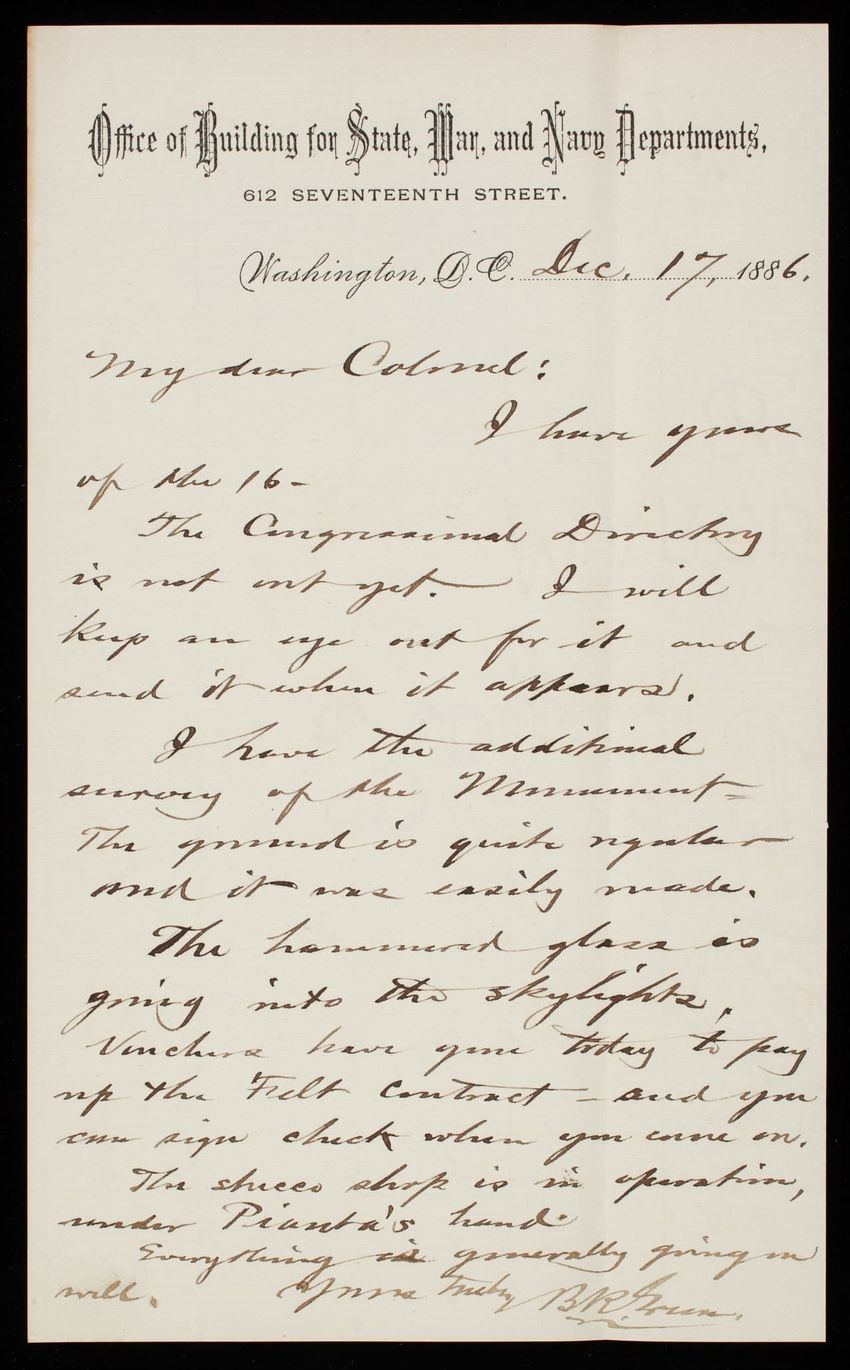 Office of Building for State, War, and Navy Departments,
612 SEVENTEENTH STREET.
Washington, D.C. Dec. 17, 1886.
My dear Colonel:
I have yours
of the 16-
The Congressional Directory
is not out yet. I will
keep an eye out for it and
send it when it appears.
I have the additional
survey of the Monument-
The ground is quite regular
and it was easily made.
The hammered glass is
going into the skylights.
Vouchers have gone today to pay
up the Felt contract - and you
can sign check when you come on.
The stucco shop is in operation,
under Pianta's hand.
Everything is generally going on
well. Yours truly B R Green.